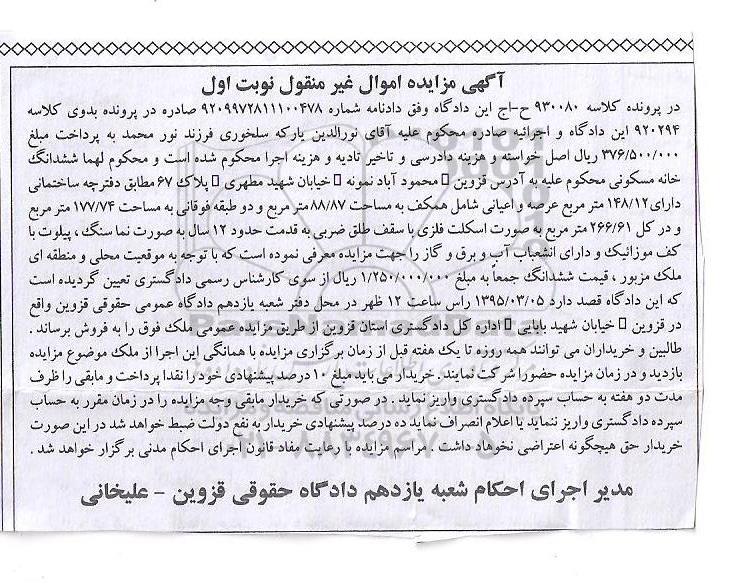 آگهی مزایده اموال غیر منقول نوبت اول
در پرونده کلاسه ۹۳۰۰۸۰ ح-اج این دادگاه وفق دادنامه شماره ۹۲۰۹۹۷۲۸۱۱۱۰۰۴۷۸ صادره در پرونده بدوی کلاسه
۹۲۰۲۹۴ این دادگاه و اجرائیه صادره محکوم علیه آقای نورالدین یارکه سلخوری فرزند نور محمد به پرداخت مبلغ
۳۷۶/۵۰۰/۰۰۰ ریال اصل خواسته و هزینه دادرسی و تاخیر تادیه و هزینه اجرا محکوم شده است و محکوم لهما ششدانگ
خانه مسکونی محکوم علیه به آدرس قزوین - محمود آباد نمونه - خیابان شهید مطهری - پلاک ۶۷ مطابق دفترچه ساختمانی
دارای ۱۴۸/۱۲ متر مربع عرصه و اعیانی شامل همکف به مساحت ۸۸/۸۷ متر مربع و دو طبقه فوقانی به مساحت ۱۷۷/۷۴ متر مربع
و در کل ۲۶۶/۶۱ متر مربع به صورت اسکلت فلزی با سقف طلق ضربی به قدمت حدود ۱۲ سال به صورت نما سنگ ، پیلوت با
کف موزائیک و دارای انشعباب آب و برق و گاز را جهت مزایده معرفی نموده است که با توجه به موقعیت محلی و منطقه ای
ملک مزبور ، قیمت ششدانگ جمعاً به مبلغ ۱/۲۵۰/۰۰۰/۰۰۰ ریال از سوی کارشناس رسمی دادگستری تعیین گردیده است
که این دادگاه قصد دارد ۱۳۹۵/۰۳/۰۵ راس ساعت ۱۲ ظهر در محل دفتر شعبه یازدهم دادگاه عمومی حقوقی قزوین واقع
در قزوین - خیابان شهید بابایی - اداره کل دادگستری استان قزوین از طریق مزایده عمومی ملک فوق را به فروش برساند .
طالبین و خریداران می توانند همه روزه تا یک هفته قبل از زمان برگزاری مزایده با همانگی این اجرا از ملک موضوع مزایده
بازدید و در زمان مزایده حضورا شرکت نمایند. خریدار می باید مبلغ ۱۰ درصد پیشنهادی خود را نقدا پرداخت و مابقی را ظرف
مدت دو هفته به حساب سپرده دادگستری واریز نماید . در صورتی که خریدار مابقی وجه مزایده را در زمان مقرر به حساب
سپرده دادگستری واریز ننماید یا اعلام انصراف نماید ده درصد پیشنهادی خریدار به نفع دولت ضبط خواهد شد در این صورت
خریدار حق هیچگونه اعتراضی نخوهاد داشت . مراسم مزایده با رعایت مفاد قانون اجرای احکام مدنی برگزار خواهد شد .
مدیر اجرای احکام شعبه یازدهم دادگاه حقوقی قزوین - علیخانی